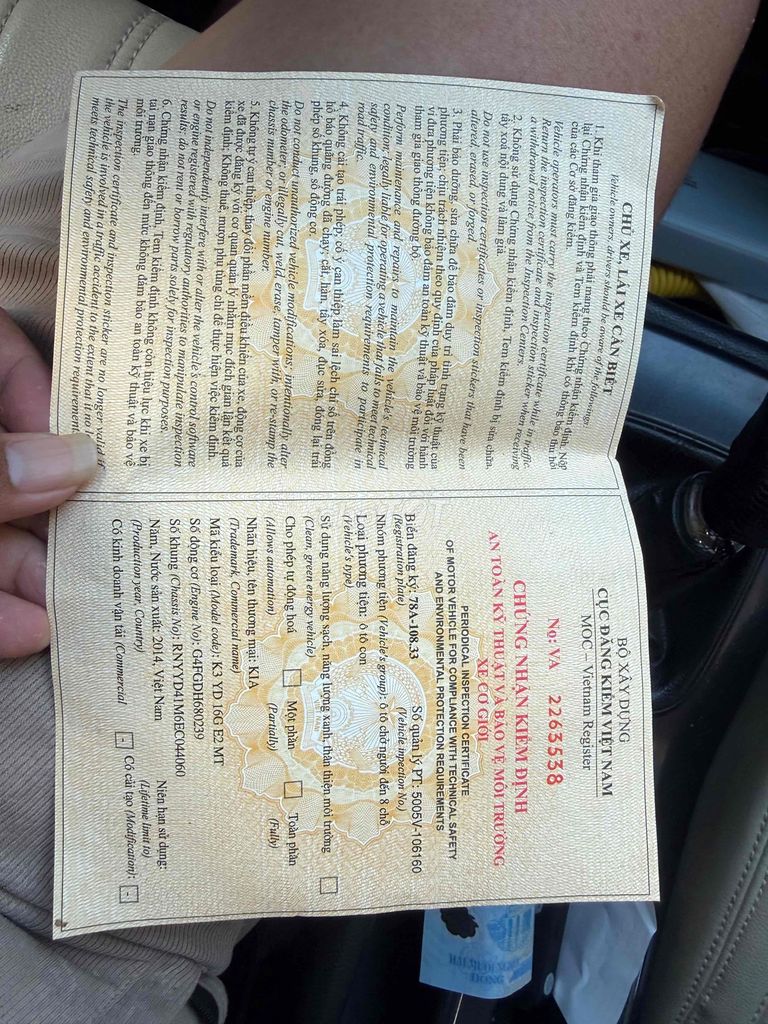 CHỦ XE, LÁI XE CẦN BIẾT
Vehicle owners, drivers should be aware of the followings:
1. Khi tham gia giao thông phải mang theo Chứng nhận kiểm định. Nộp
lại Chứng nhận kiểm định và Tem kiểm định khi có thông báo thu hồi
của các Cơ sở đăng kiểm.
Vehicle operators must carry the inspection certificate while in traffic.
Return the inspection certificate and inspection sticker when receiving
a withdrawal notice from the Inspection Centers.
2. Không sử dụng Chứng nhận kiểm định, Tem kiểm định bị sửa chữa,
tẩy xoá nội dung và làm giả.
Do not use inspection certificates or inspection stickers that have been
altered, erased, or forged.
3. Phải bảo dưỡng, sửa chữa để bảo đảm duy trì tình trạng kỹ thuật của
phương tiện; chịu trách nhiệm theo quy định của pháp luật đối với hành
vi đưa phương tiện không bảo đảm an toàn kỹ thuật và bảo vệ môi trường
tham gia giao thông đường bộ.
Perform maintenance and repairs to maintain the vehicle's technical
condition; legally liable for operating a vehicle that fails to meet technical
safety and environmental protection requirements to participate in
road traffic.
4. Không cải tạo trái phép; cố ý can thiệp làm sai lệch chỉ số trên đồng
hồ báo quãng đường đã chạy; cắt, hàn, tẩy xóa, đục sửa, đóng lại trái
phép số khung, số động cơ.
Do not conduct unauthorized vehicle modifications; intentionally alter
the odometer; or illegally cut, weld, erase, tamper with, or re-stamp the
chassis number or engine number.
5. Không tự ý can thiệp, thay đổi phần mềm điều khiển của xe, động cơ của
xe đã được đăng ký với cơ quan quản lý nhằm mục đích gian lận kết quả
kiểm định; Không thuê, mượn phụ tùng chỉ để thực hiện việc kiểm định.
Do not independently interfere with or alter the vehicle's control software
or engine registered with regulatory authorities to manipulate inspection
results; do not rent or borrow parts solely for inspection purposes.
6. Chứng nhận kiểm định, Tem kiểm định không còn hiệu lực khi xe bị
tai nạn giao thông đến mức không đảm bảo an toàn kỹ thuật và bảo vệ
môi trường.
The inspection certificate and inspection sticker are no longer valid if
the vehicle is involved in a traffic accident to the extent that it no
meets technical safety and environmental protection requirement
BỘ XÂY DỰNG
CỤC ĐĂNG KIỂM VIỆT NAM
MOC – Vietnam Register
No: VA 2263538
CHỨNG NHẬN KIỂM ĐỊNH
AN TOÀN KỸ THUẬT VÀ BẢO VỆ MÔI TRƯỜNG
XE CƠ GIỚI
PERIODICAL INSPECTION CERTIFICATE
OF MOTOR VEHICLE FOR COMPLIANCE WITH TECHNICAL SAFETY
AND ENVIRONMENTAL PROTECTION REQUIREMENTS
Biển đăng ký: 78A-108.33 Số quản lý PT: 5005V-106160
(Registration plate) (Vehicle inpection No.)
Nhóm phương tiện (Vehicle's group): ô tô chở người đến 8 chỗ
Loại phương tiện: ô tô con
(Vehicle's type)
Sử dụng năng lượng sạch, năng lượng xanh, thân thiện môi trường
(Clean, green energy vehicle)
Cho phép tự động hoá Một phần Toàn phần
(Allows automation) (Partially) (Fully)
Nhãn hiệu, tên thương mại: KIA
(Trademark, Commercial name)
Mã kiểu loại (Model code): K3 YD 16G E2 MT
Số động cơ (Engine No): G4FGDH680239
Số khung (Chassis No): RNYYD41M6EC044060
Năm, Nước sản xuất: 2014, Việt Nam Niên hạn sử dụng:
(Production year, Country) (Lifetime limit to)
Có kinh doanh vận tải (Commercial - Có cải tạo (Modification): -